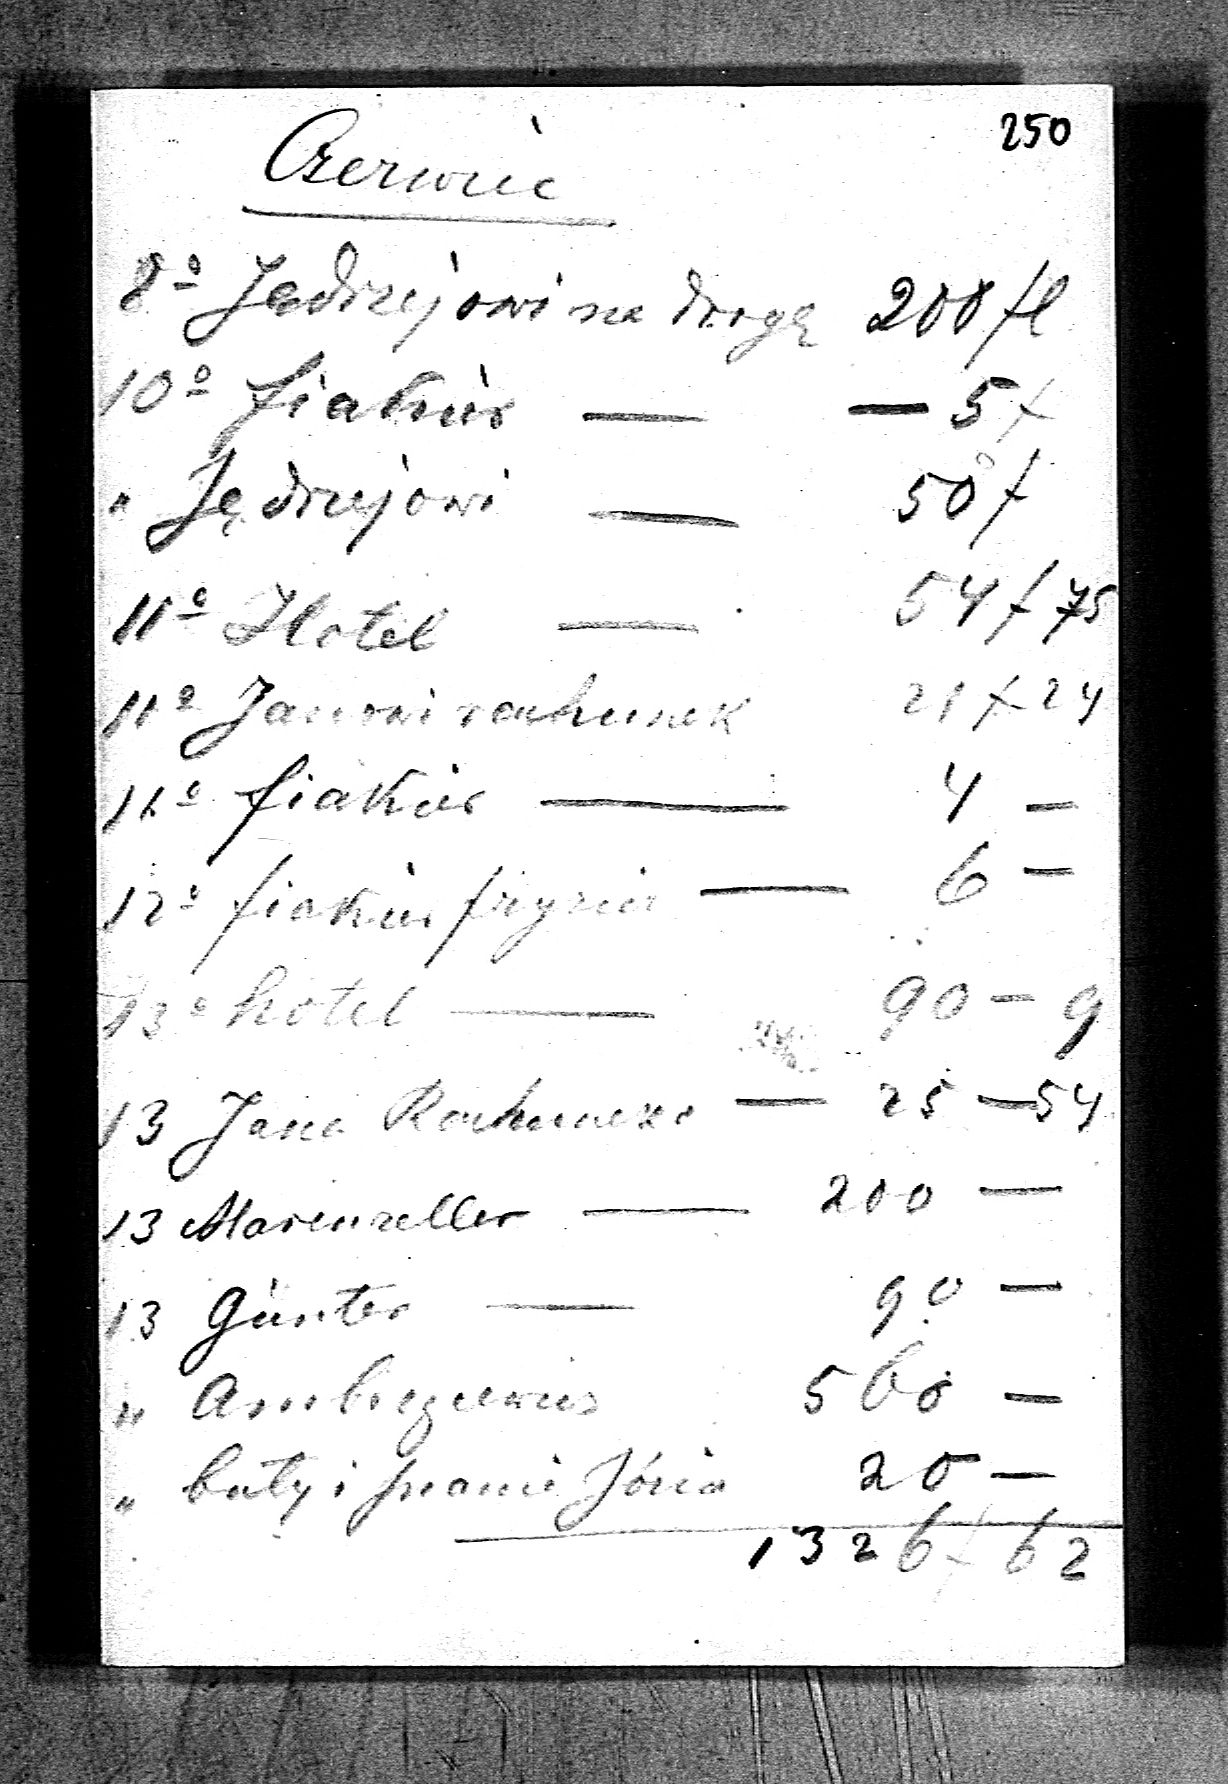 250
Czerwiec
8º Jędrzejowi na drogę 200 fl
10º fiakier — — 5 f
" Jędrzejowi — 50 f
11º Hotel — 54 f 75
11º Janowi rachunek 21 f 24
11º fiakier — 4 —
12º fiakier fryzier — 6 —
13º hotel — 90 — 9
13 Jana Rachunek — 25 — 54
13 Marenzeller — 200 —
13 Günter — 90 —
" Ambroziewicz 560 —
" buty i Józia 20 —
1326 f 62